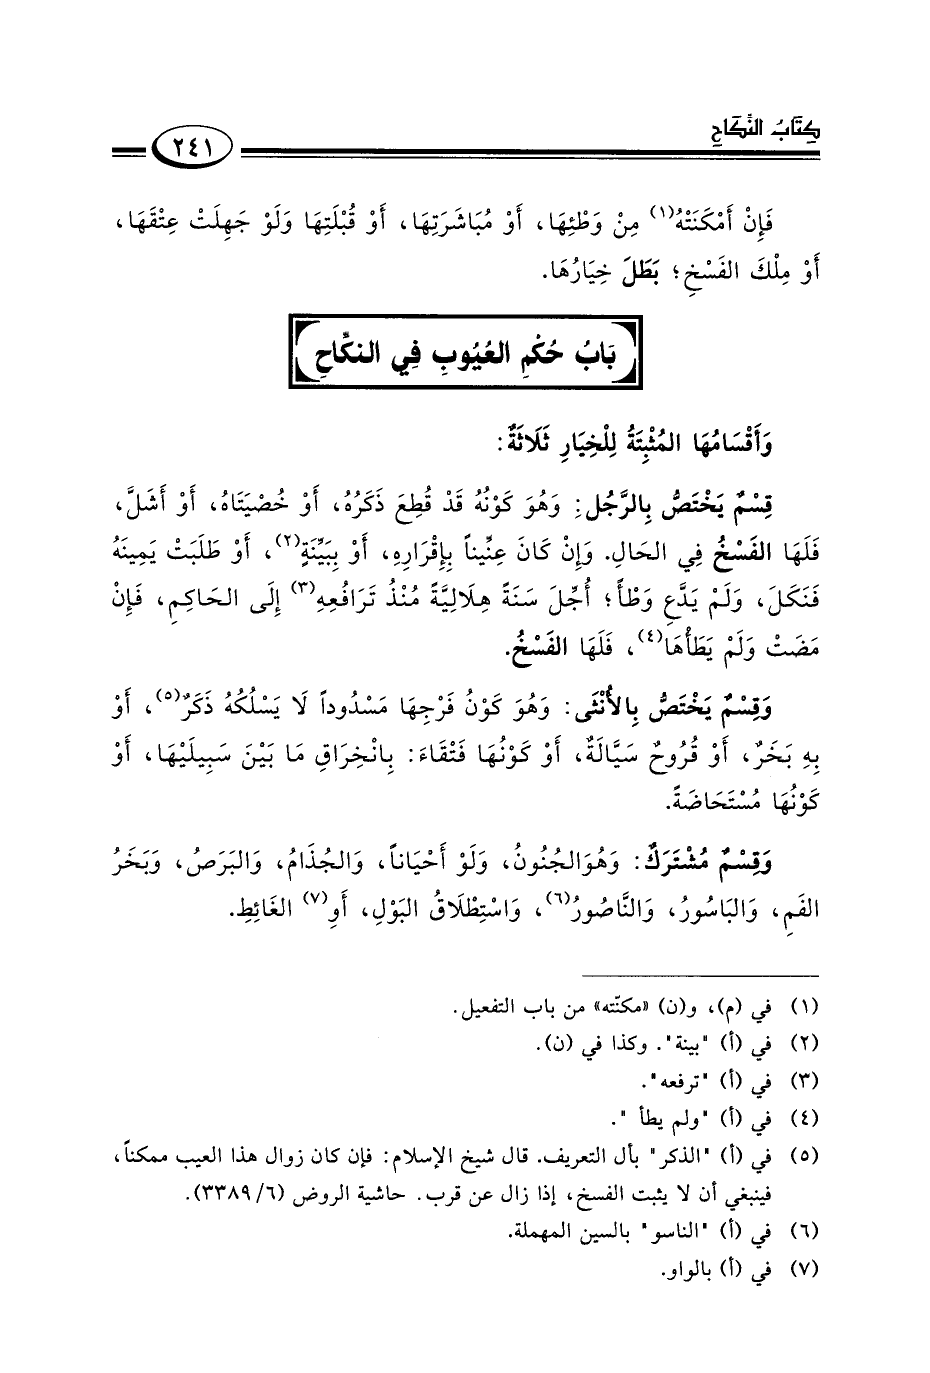 كِتَابُ النِّكَاحِ
٢٤١
فَإِنْ أَمْكَنَتْهُ(١) مِنْ وَطْئِهَا، أَوْ مُبَاشَرَتِهَا، أَوْ قُبْلَتِهَا وَلَوْ جَهِلَتْ عِتْقَهَا،
أَوْ مِلْكَ الفَسْخِ؛ بَطَلَ خِيَارُهَا.
بَابُ حُكْمِ العُيُوبِ فِي النكَّاحِ
وَأَقْسَامُهَا المُثْبِتَةُ لِلْخِيَارِ ثَلَاثَةٌ:
قِسْمٌ يَخْتَصُّ بِالرَّجُلِ: وَهُوَ كَوْنُهُ قَدْ قُطِعَ ذَكَرُهُ، أَوْ خُصْيَتَاهُ، أَوْ أَشَلَّ،
فَلَهَا الفَسْخُ فِي الحَالِ. وَإِنْ كَانَ عِنِّيناً بِإِقْرَارِهِ، أَوْ بِبَيِّنَةٍ(٢)، أَوْ طَلَبَتْ يَمِينَهُ
فَنَكَلَ، وَلَمْ يَدَّعِ وَطْأً؛ أُجِّلَ سَنَةً هِلَالِيَّةً مُنْذُ تَرَافُعِهِ(٣) إِلَى الحَاكِمِ، فَإِنْ
مَضَتْ وَلَمْ يَطَأْهَا(٤)، فَلَهَا الفَسْخُ.
وَقِسْمٌ يَخْتَصُّ بِالأُنْثَى: وَهُوَ كَوْنُ فَرْجِهَا مَسْدُوداً لَا يَسْلُكُهُ ذَكَرٌ(٥)، أَوْ
بِهِ بَخَرٌ، أَوْ قُرُوحٌ سَيَّالَةٌ، أَوْ كَوْنُهَا فَتْقَاءَ: بِانْخِرَاقِ مَا بَيْنَ سَبِيلَيْهَا، أَوْ
كَوْنُهَا مُسْتَحَاضَةً.
وَقِسْمٌ مُشْتَرَكٌ: وَهُوَالجُنُونُ، وَلَوْ أَحْيَاناً، وَالجُذَامُ، وَالبَرَصُ، وَبَخَرُ
الفَمِ، وَالبَاسُورُ، وَالنَّاصُورُ(٦)، وَاسْتِطْلَاقُ البَوْلِ، أَوِ(٧) الغَائِطِ.
(١) في (م)، و(ن) «مكنّته» من باب التفعيل.
(٢) في (أ) "بينة". وكذا في (ن).
(٣) في (أ) "ترفعه".
(٤) في (أ) "ولم يطأ ".
(٥) في (أ) "الذكر" بأل التعريف. قال شيخ الإسلام: فإن كان زوال هذا العيب ممكناً،
فينبغي أن لا يثبت الفسخ، إذا زال عن قرب. حاشية الروض (٣٣٨٩/٦).
(٦) في (أ) "الناسو" بالسين المهملة.
(٧) في (أ) بالواو.